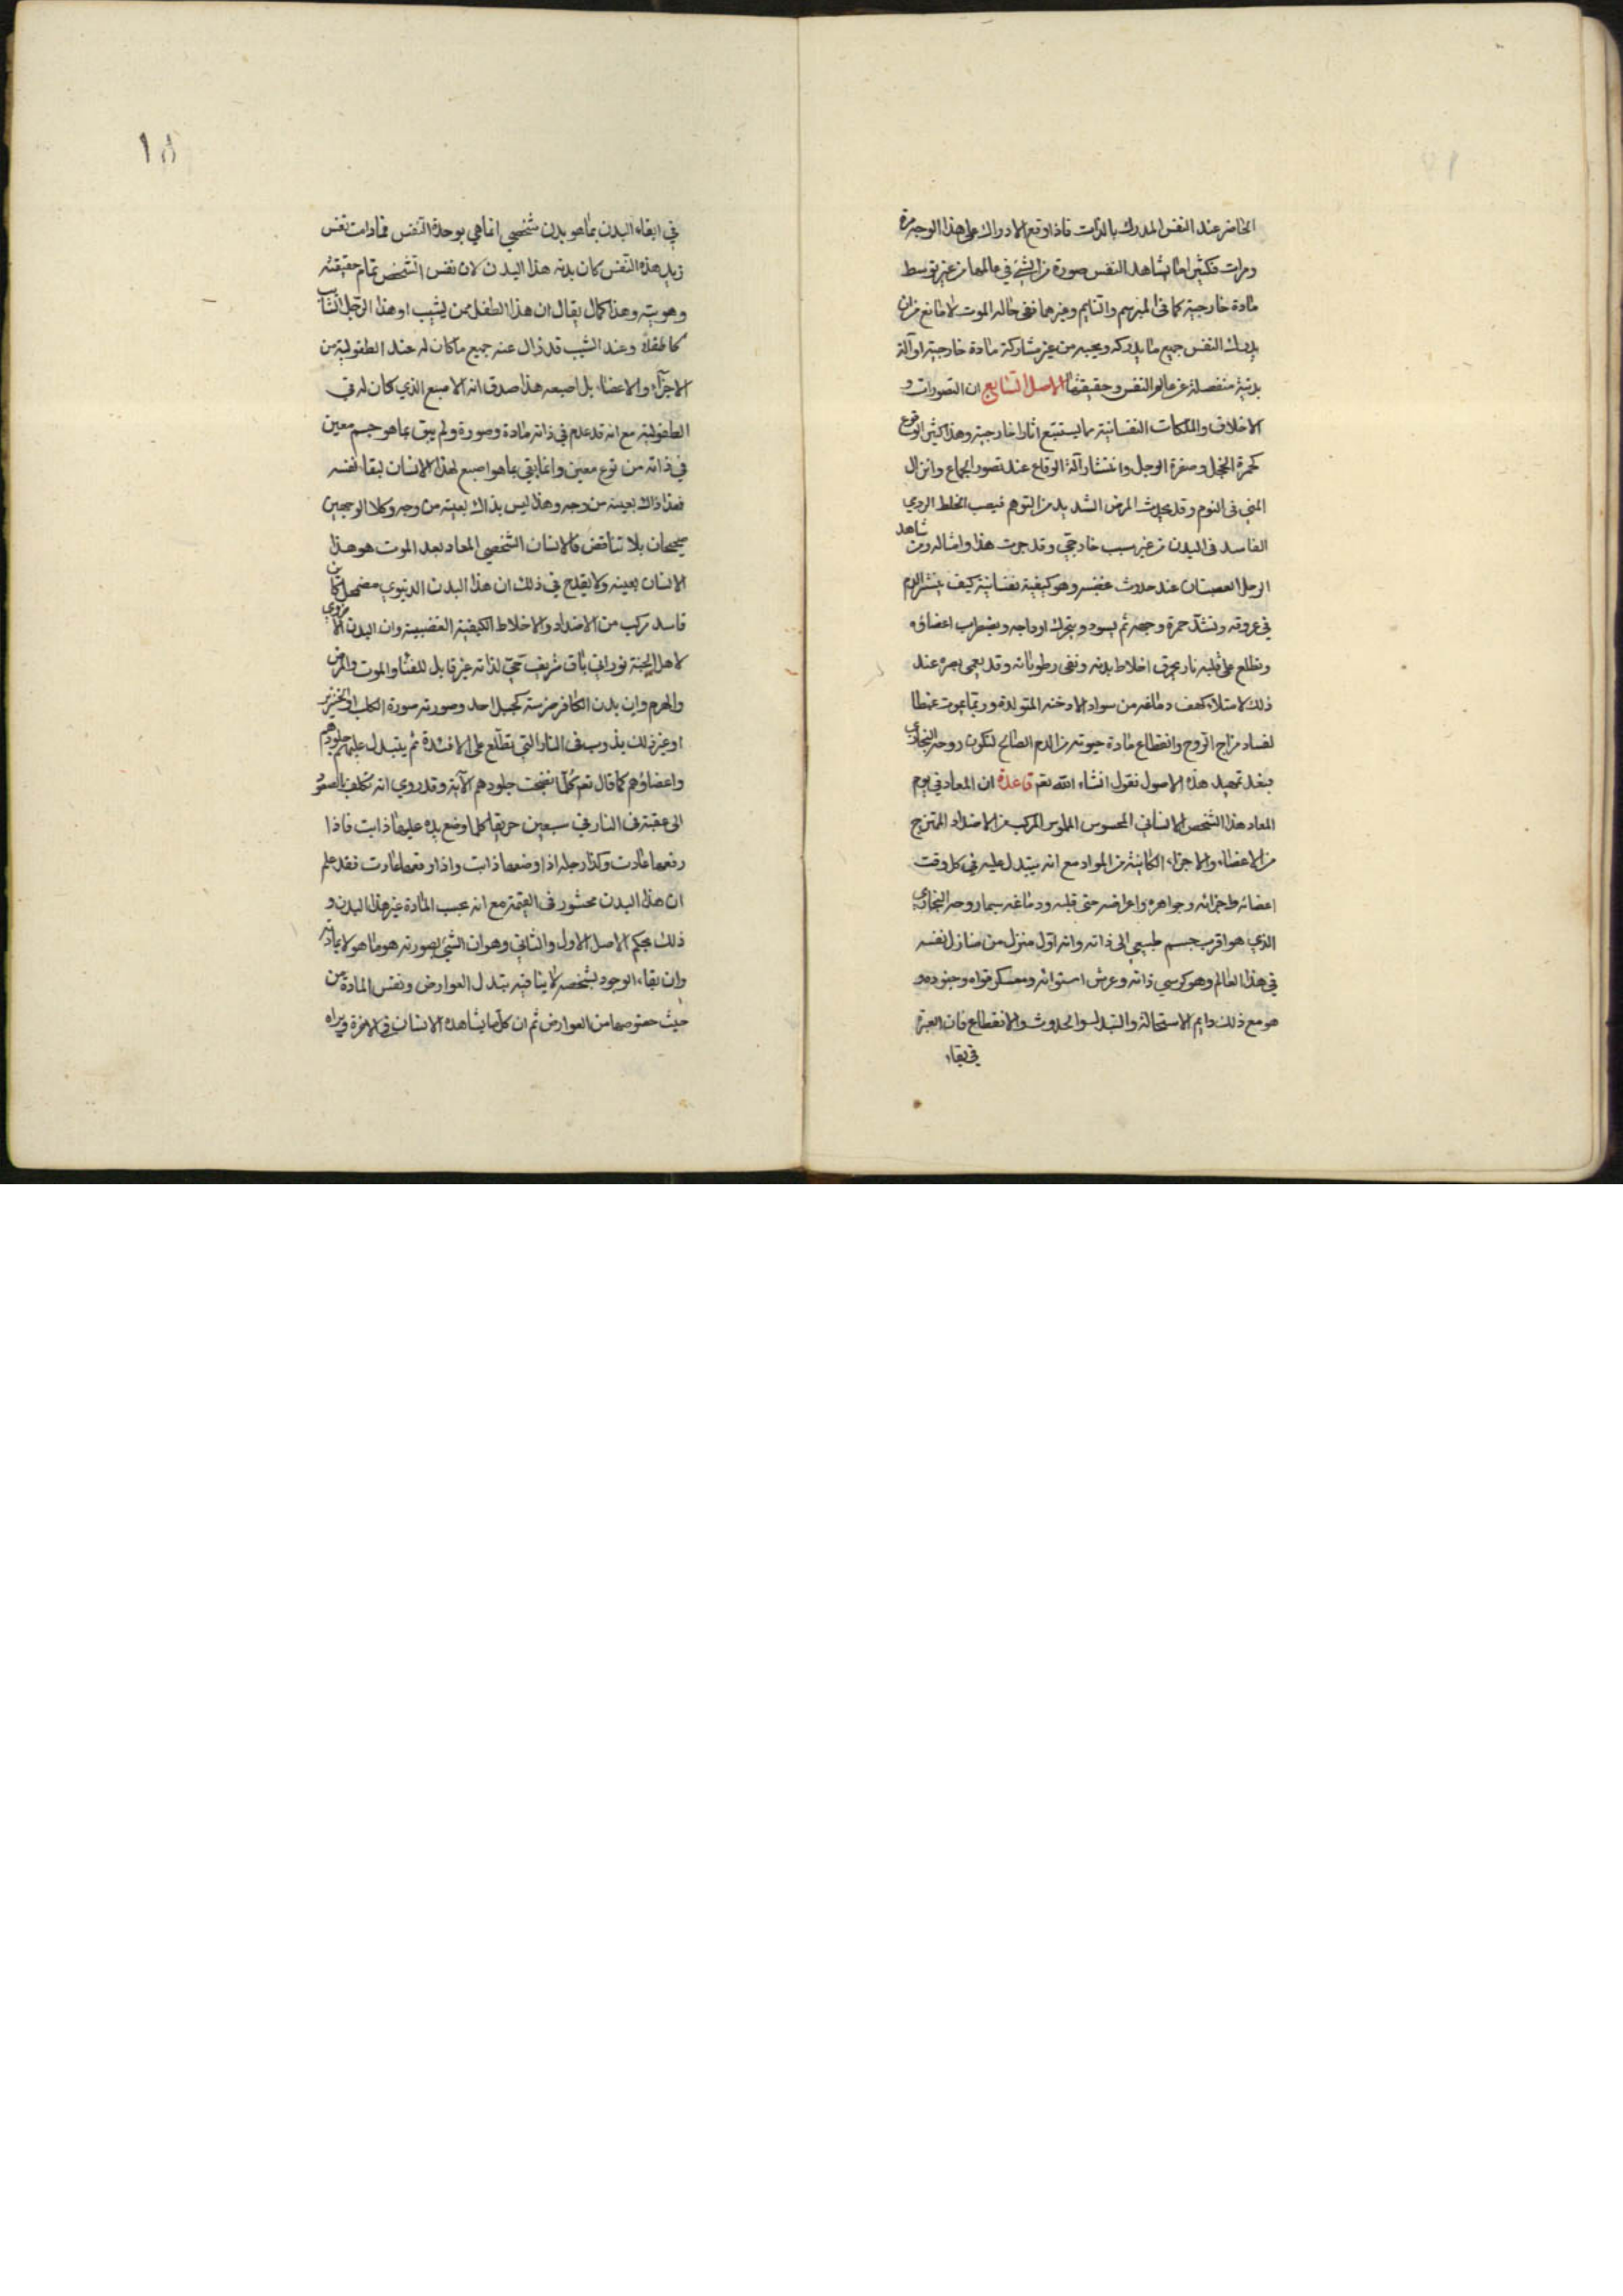 الحاضر عند النفس المدرك بالذات فاذا وقع الادراك على هذا الوجه مرة
ومرات فكثيرا ما يشاهد النفس صورة من الشئ في عالمها من غير توسط
مادة خارجية كما فى المبرسم والنايم وغيرهما ففى حالة الموت لا مانع من ان
يدرك النفس جميع ما يدركه ويحسه من غير مشاركة مادة خارجية او آلة
بدنية منفصلة عن عالم النفس وحقيقتها الاصل السابع ان التصورات و
الاخلاق والملكات النفسانية مما يستتبع اثارا خارجية وهذا كثير الوقوع
كحمرة الخجل وصفرة الوجل وانتشار آلة الوقاع عند تصور الجماع وانزال
المني فى النوم وقد يحدث المرض الشديد من التوهم فيصب الخلط الردي
الفاسد فى البدن من غير سبب خارجي وقد جرت هذا وامثاله ومن شاهد
الرجل الغضبان عند حدوث غضبه وهو كيفية نفسانية كيف ينتشر الدم
في عروقه وتشتد حمرة وجهه ثم يسود ويتحرك اوداجه ويضطرب اعضاؤه
وتطلع على قلبه نار يحرق اخلاط بدنه وتفنى رطوباته وقد يعمى بصره عند
ذلك لامتلاء كهف دماغه من سواد الادخنة المتولدة وربما يموت غيظا
لفساد مزاج الروح وانقطاع مادة حيوته من الدم الصالح لتكون روحه البخاري
فبعد تمهيد هذه الاصول نقول انشاء الله تعم قاعدة ان المعاد في يوم
المعاد هذا الشخص الانساني المحسوس الملموس المركب من الاضداد الممتزج
من الاعضاء والاجزاء الكاينة من المواد مع انه يتبدل عليه في كل وقت
اعضائه واجزائه وجواهره واعراضه حتى قلبه ودماغه سيما روحه البخاري
الذي هو اقرب جسم طبيعي الى ذاته وانه اول منزل من منازل نفسه
في هذا العالم وهو كرسي ذاته وعرش استوائه ومعسكر قواه وجنوده و
هو مع ذلك دايم الاستحالة والتبدل والحدوث والانقطاع فان العبرة
في بقاء
١٨
في ابقاء البدن بما هو بدن شخصي انما هي بوحدة النفس فما دامت نفس
زيد هذه النفس كان بدنه هذا البدن لان نفس الشخص تمام حقيقته
وهويته وهذا كمال يقال ان هذا الطفل ممن يشيب او هذا الرجل الشاب
كان طفلا وعند الشيب قد زال عنه جميع ما كان له عند الطفولية من
الاجزاء والاعضاء بل اصبعه هذا صدق انه الاصبع الذي كان له في
الطفولية مع انه قد عدم في ذاته مادة وصورة ولم يبق بما هو جسم معين
في ذاته من نوع معين وانما بقي بما هو اصبع لهذا الانسان لبقاء نفسه
فهذا ذاك بعينه من وجه وهذا ليس بذاك بعينه من وجه وكلا الوجهين
صحيحان بلا تناقض فالانسان الشخصي المعاد بعد الموت هو هذا
الانسان بعينه ولا يقدح في ذلك ان هذا البدن الدنيوي مضمحل كاين
فاسد مركب من الاضداد والاخلاط الكيفية العفنة وان البدن الاخروي
لاهل الجنة نوراني باق شريف حي لذاته غير قابل للفناء والموت والمرض
والهرم وان بدن الكافر ضرسه كجبل احد وصورته صورة الكلب او الخنزير
او غير ذلك يذوب فى النار التي تطلع على الافئدة ثم يتبدل عليهم جلودهم
واعضاؤهم كما قال تعم كلما نضجت جلودهم الآية وقد روي انه تكلف الصعود
الى عقبة فى النار في سبعين خريفا كلما وضع يده عليها ذابت فاذا
رفعها عادت وكذا رجله اذا وضعها ذابت واذا رفعها عادت فقد علم
ان هذا البدن محشور فى القيمة مع انه بحسب المادة غير هذا البدن و
ذلك بحكم الاصل الاول والثاني وهو ان الشئ بصورته هو ما هو لا بمادته
وان بقاء الوجود بشخصه لا ينافيه بتدل العوارض ونفس المادة من
حيث خصوصها من العوارض ثم ان كل ما يشاهده الانسان فى الاخرة ويراه